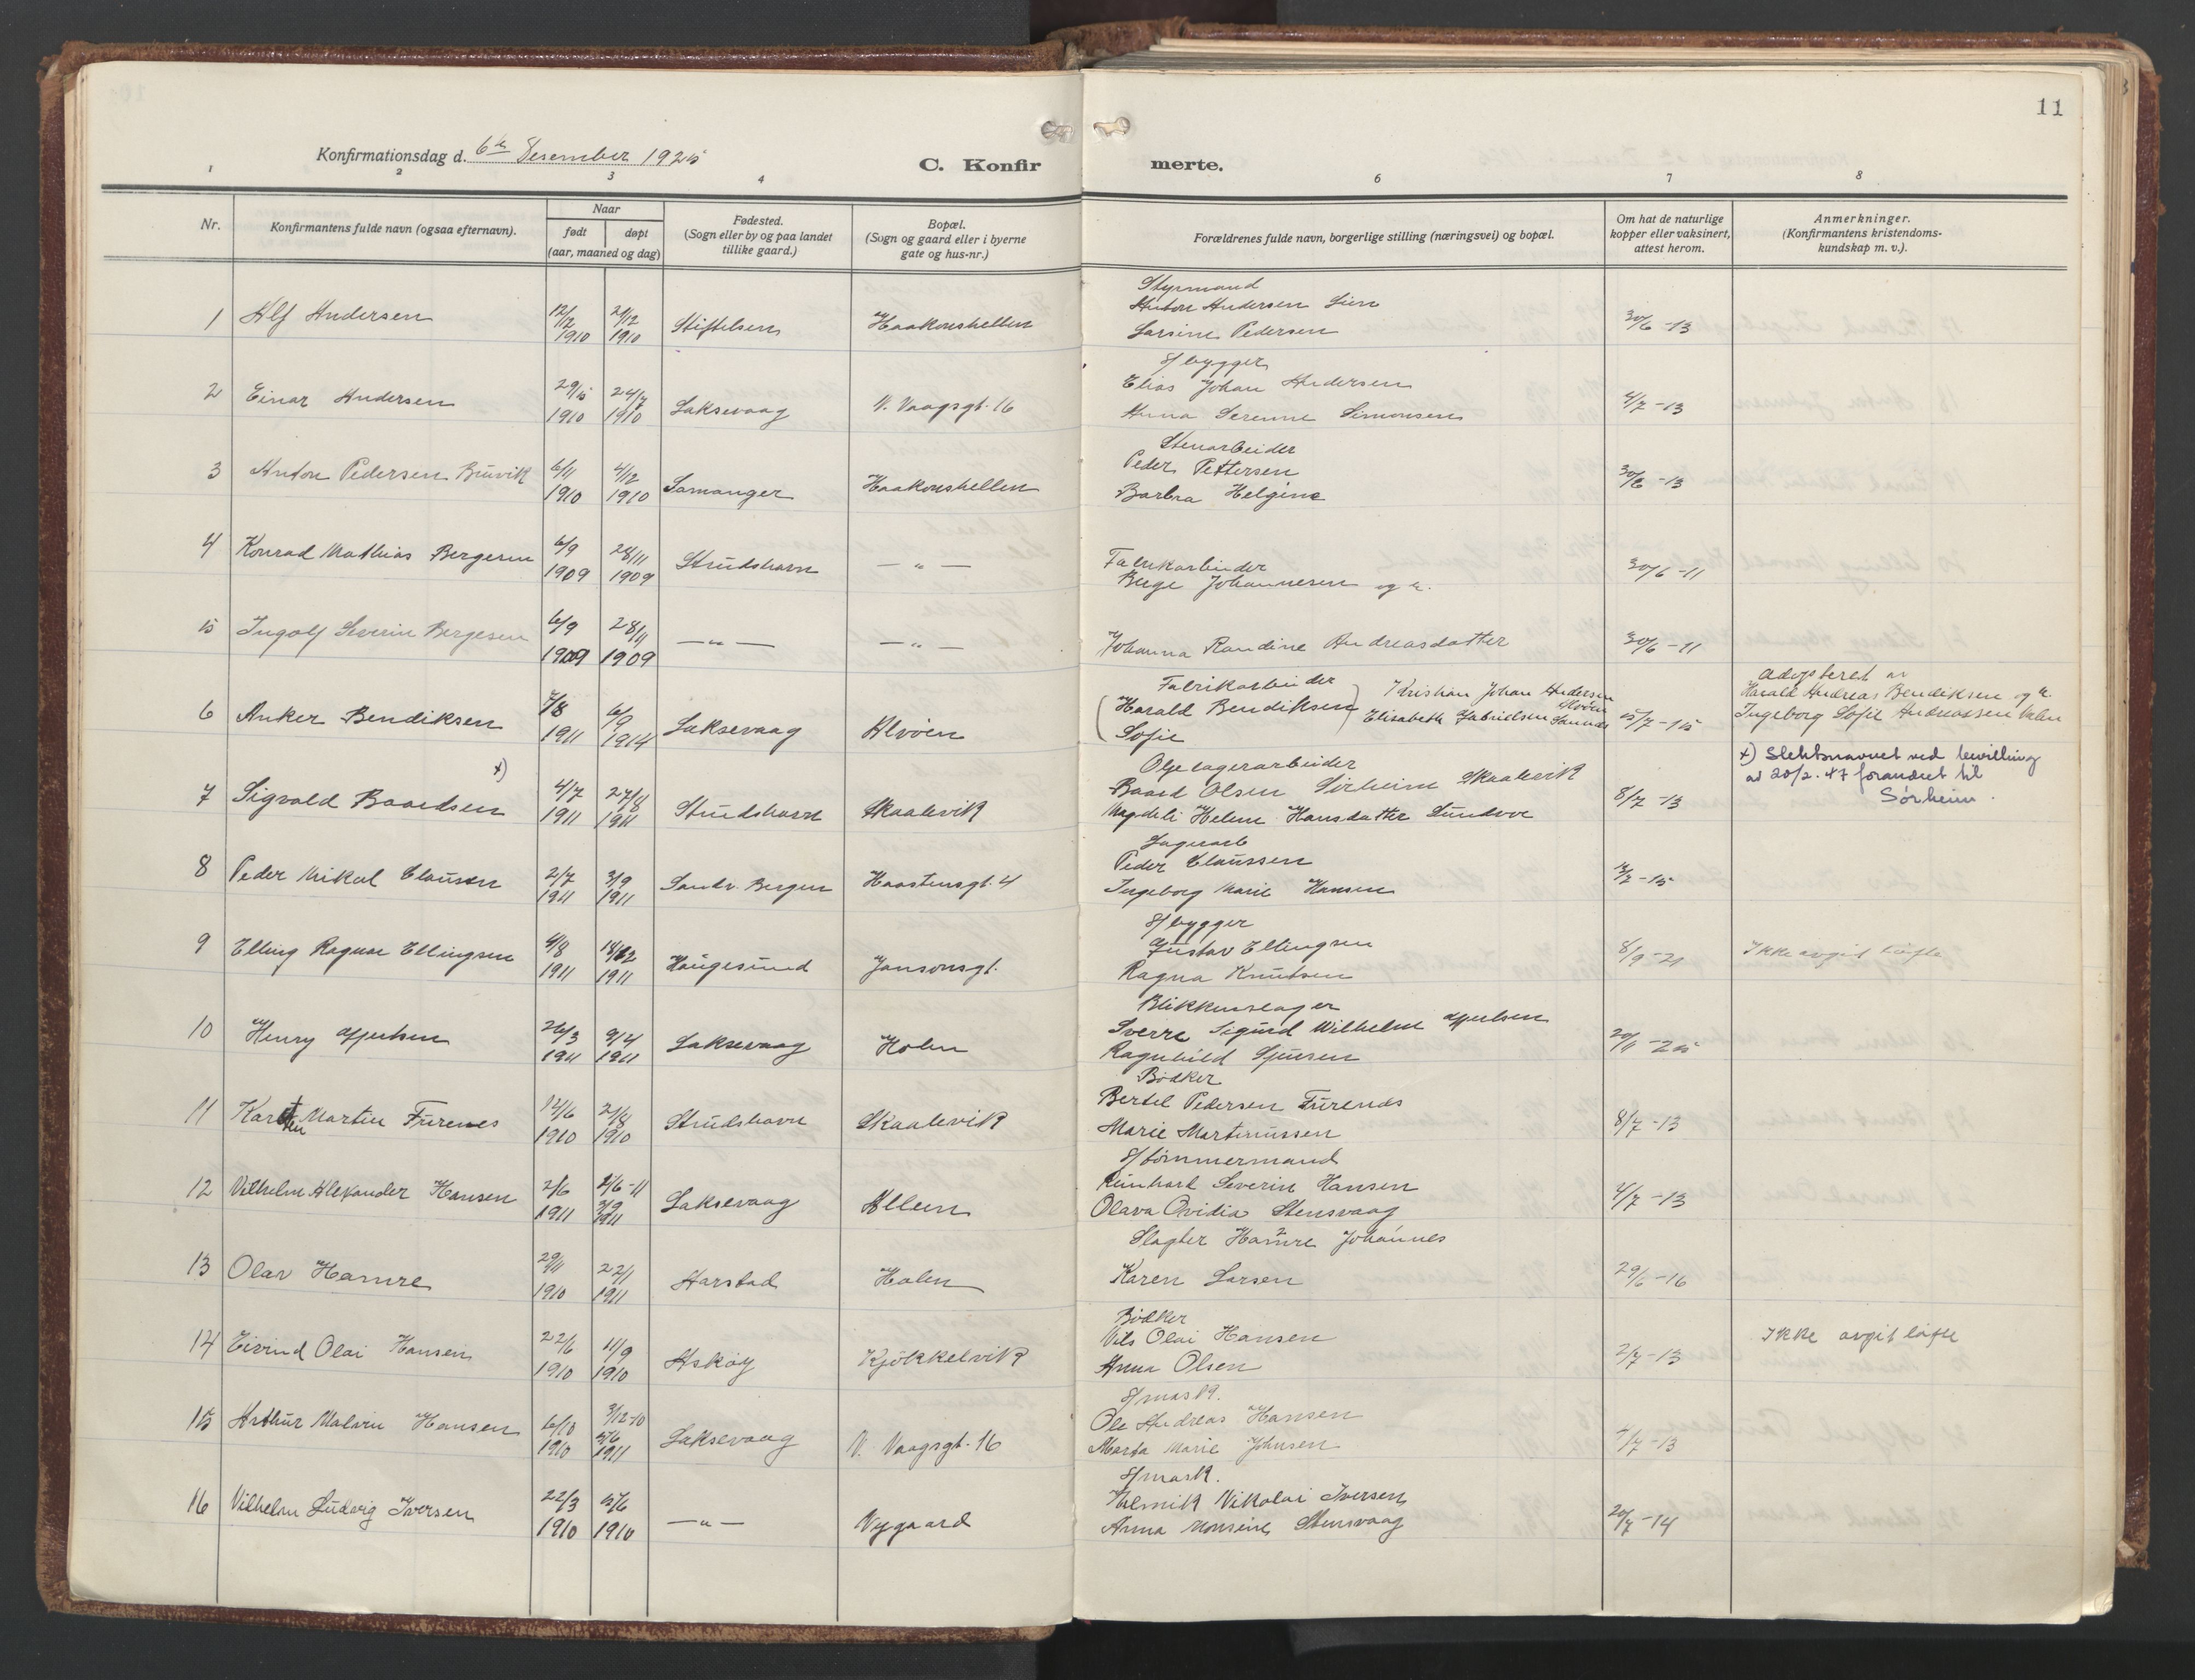 11
Konfirmationsdag d. 6te Desember 1925
C. Konfir merte.
1 2 3 4 6 7 8
Nr.
Konfirmantens fulde navn (ogsaa efternavn).
Naar
født døpt
(aar, maaned og dag)
Fødested.
(Sogn eller by og paa landet
tillike gaard.)
Bopæl.
(Sogn og gaard eller i byerne
gate og hus-nr.)
Forældrenes fulde navn, borgerlige stilling (næringsvei) og bopæl.
Om hat de naturlige
kopper eller vaksinert,
attest herom.
Anmerkninger.
(Konfirmantens kristendoms-
kundskap m. v.).
Styrmand
1 Alf Andersen 12/12 1910 21/12 1910 Stiftelsen Haakonshellen Anton Andersen Lien 30/6 -13
Larsine Pedersen
S/bygger
2 Einar Andersen 29/5 1910 24/7 1910 Laksevaag N. Vaagsgt. 16 Elias Johan Andersen 4/7 -13
Anna Serenne Simonsen
Stenarbeider
3 Anton Pedersen Buvik 6/11 1910 4/12 1910 Samanger Haakonshellen Peder Pettersen 30/6 -13
Barbra Helgine
4 Konrad Mathias Bergesen 6/9 1909 28/11 1909 Strudshavn — " — Fabrikarbeider 30/6 -11
Berge Johannesen og h.
5 Ingolf Severin Bergesen 6/9 1909 28/11 1909 — " — — " — Johanna Randine Andreasdatter 30/6 -11
6 Anker Bendiksen 7/8 1911 6/9 1914 Laksevaag Alvöen Fabrikarbeider
(Harald Bendiksen) Kristian Johan Andersen Alvöen
Sofie Elisabeth Gabrielsen Sannes 5/7 -15
adopteret av
Harald Andreas Bendiksen og h.
Ingeborg Sofie Andreassen
7 Sigvald Baardsen x) 4/7 1911 27/8 1911 Strudshavn Skaalevik Oljelagerarbeider
Baard Olsen Sörheim Skaalevik 8/7 -13
Magdeli Helene Hansdatter Lundvoe
x) Slektsnavnet ved bevilling
av 20/2. 47 forandret til
Sörheim.
8 Peder Mikal Claussen 2/7 1911 3/9 1911 Sandv. Bergen Haastensgt. 4 Lagerarb
Peder Claussen
Ingeborg Marie Hansen
9 Elling Ragnar Ellingsen 4/8 1911 1911 Haugesund Jansonsgt. S/bygger
Gustav Ellingsen 8/9 -21 Ikke avgit löfte
Ragna Knutsen
10 Henry 26/3 1911 9/4 1911 Laksevaag Holen Blikkenslager
Sverre Sigurd Wilhelm 20/11 -25
Ragnhild
11 Karsten Martin Furenes 12/6 1910 21/8 1910 Strudshavn Skaalevik Bödker
Bertel Pedersen Furenes 8/7 -13
Marie Martinussen
12 Vilhelm Alexander Hansen 2/6 1911 2/6 -11 3/9 1911 Laksevaag Alleen S/tömmermand
Reinhart Severin Hansen 4/7 -13
Olava Ovidia Stensvaag
13 Olav Hamre 29/11 1910 22/1 1911 Harstad Holen Slagter Hamre Johannes
Karen Larsen 29/6 -16
14 Eivind Olai Hansen 22/6 1910 11/9 1910 Askøy Kjökkelvik Bödker
Nils Olai Hansen 2/7 -13 Ikke avgit löfte
Anna Olsen
15 Arthur Malvin Hansen 6/10 1910 3/12 -10 5/6 1911 Laksevaag N. Vaagsgt. 16 S/mask.
Ole Andreas Hansen 4/7 -13
Marta Marie Johnsen
16 Vilhelm Ludvig Iversen 22/3 1910 5/6 1910 — " — Nygaard S/mask.
Nikolai Iversen 20/7 -14
Anna Monsine Stensvaag